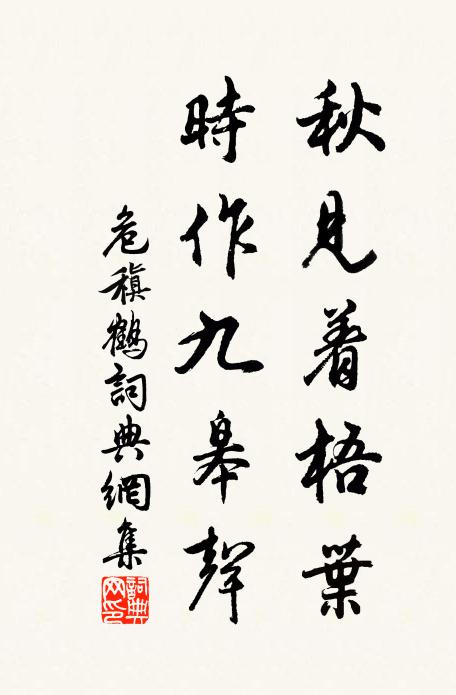 秋見着梧葉
時作九皋聲
危稹鶴詞典網集
詞典網印